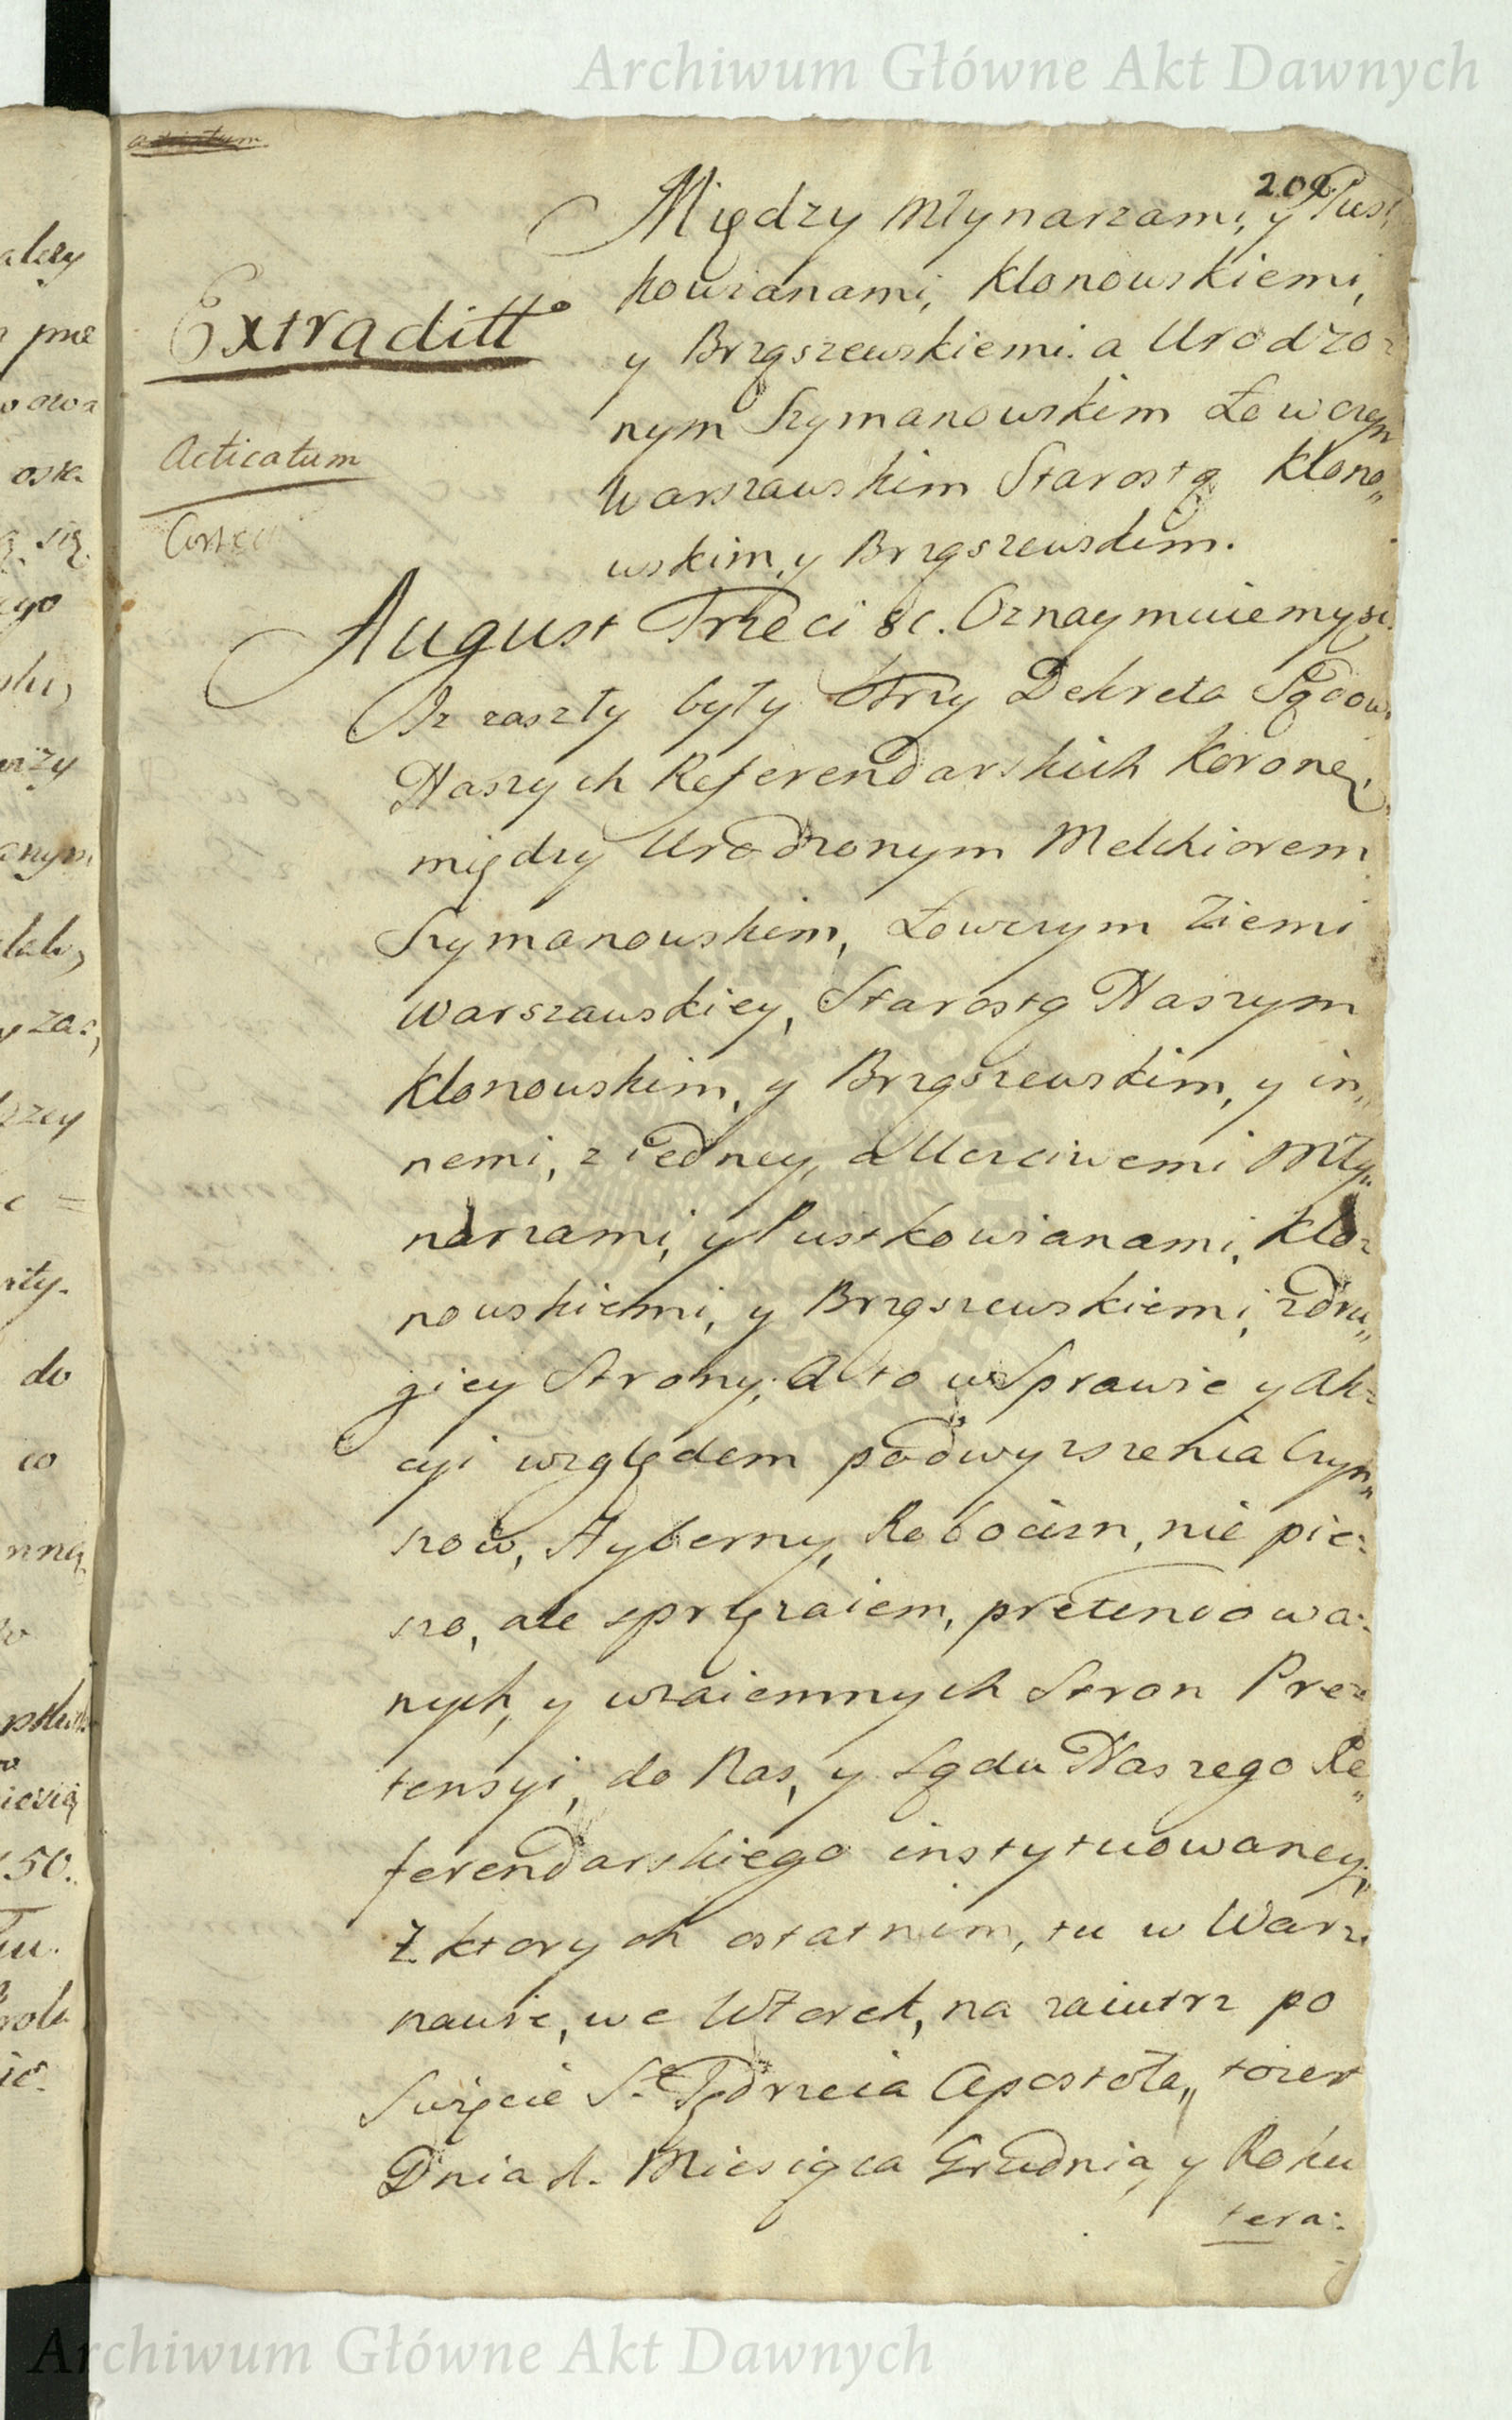 Archiwum Główne Akt Dawnych
209
Między Młynarzami, y Pust,
kowianami, Klonowskiemi,
y Brząszewskiemi. a Urodzo=
nym Szymanowskim Łowczym
Warszawskim Starostą Klono„
wskim, y Brząszewskim.
Extraditt°
Acticatum
August Trzeci &c. Oznaymuiemy &c.
Iz zaszły były trzy Dekreta Sądow
Naszych Referendarskich Koronę,
między Urodzonym Melchiorem
Szymanowskim, Łowczym Ziemi
Warszawskiey, Starostą Naszym
Klonowskim, y Brząszewskim, y in„
nemi, z iedney, a Uczciwemi Mły„
narzami, y Pustkowianami, Klo=
nowskiemi, y Brząszewskiemi, zdru„
giey Strony; A to w Sprawie y Ak=
cyi względem podwyzszenia Czyn„
szow, Hyberny, Robocizn, nie pie=
szo, ale zprzęzaiem, pretendowa=
nych, y wzaiemnych Stron Pre=
tensyi, do Nas, y Sądu Naszego Re„
ferendarskiego instytuowaney,
Z ktorych ostatnim, tu w War=
szawie, we Wtorek, na zaiutrz po
Swięcie S.° Jędrzeia Apostoła„ toiest
Dnia 1. Miesiąca Grudnia, y Roku
tera=
Archiwum Główne Akt Dawnych